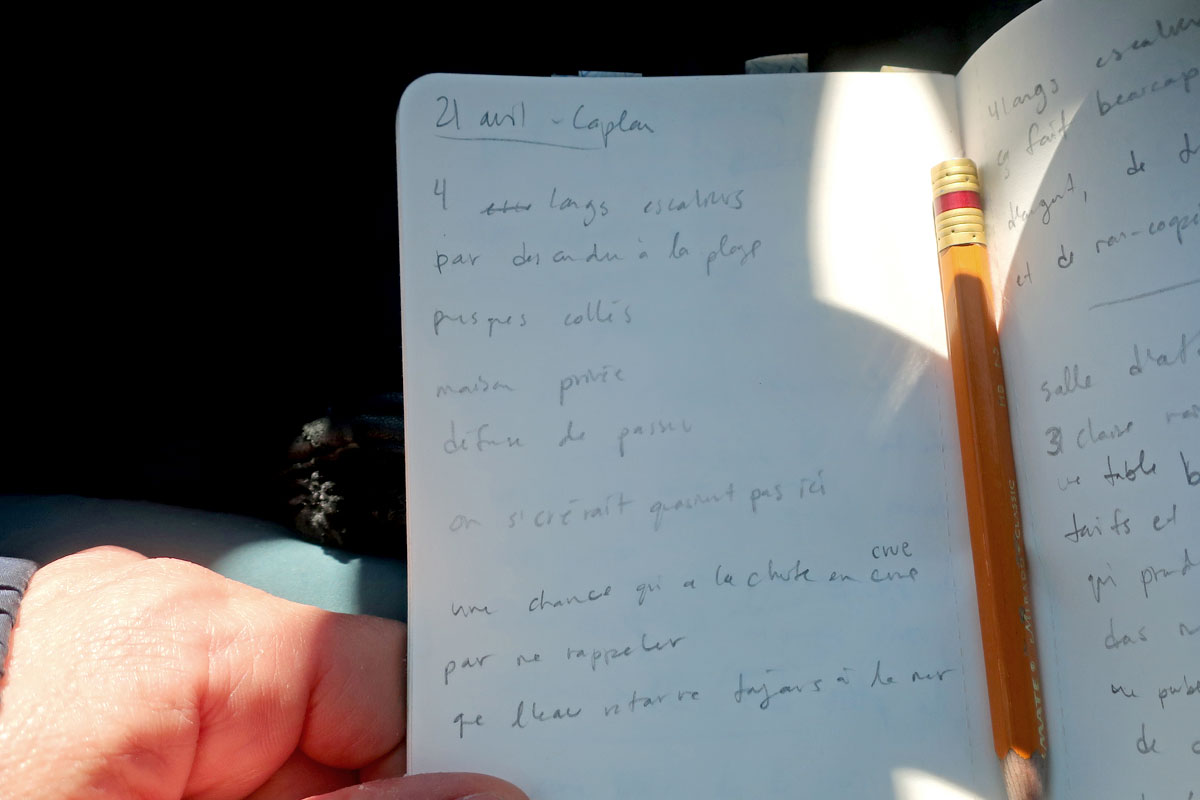 21 avril - Caplan
4 longs escaliers
pour descendre à la plage
presques collés
maison privée
défense de passer
on s'crérait quasiment pas ici
une chance qui a la chute en crue
crue
pour me rappeler
que l'eau retourne toujours à la mer
4 longs escaliers
ça fait beaucoup
d'argent, de
et de
salle d'at
3 chaise
une table b
tarifs et
qui prend
dans
une
de